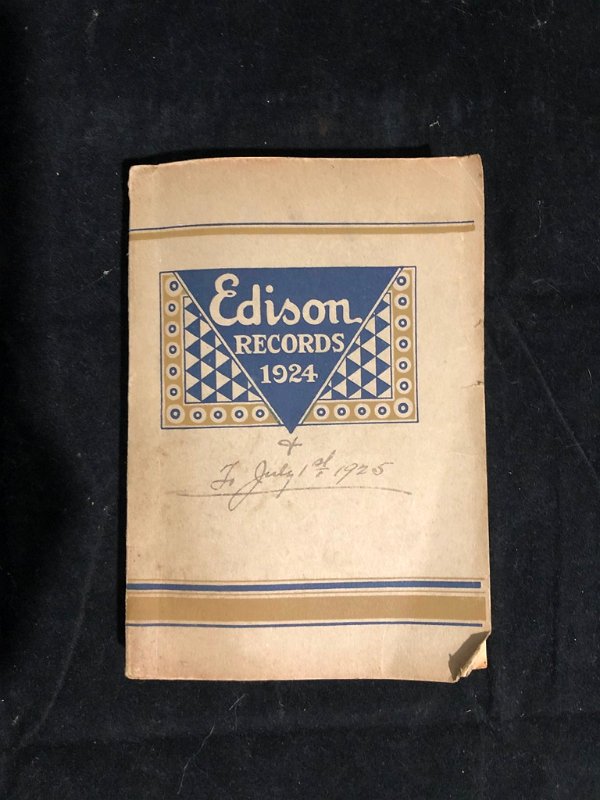 Edison
RECORDS
1924
&
To July 1st 1925